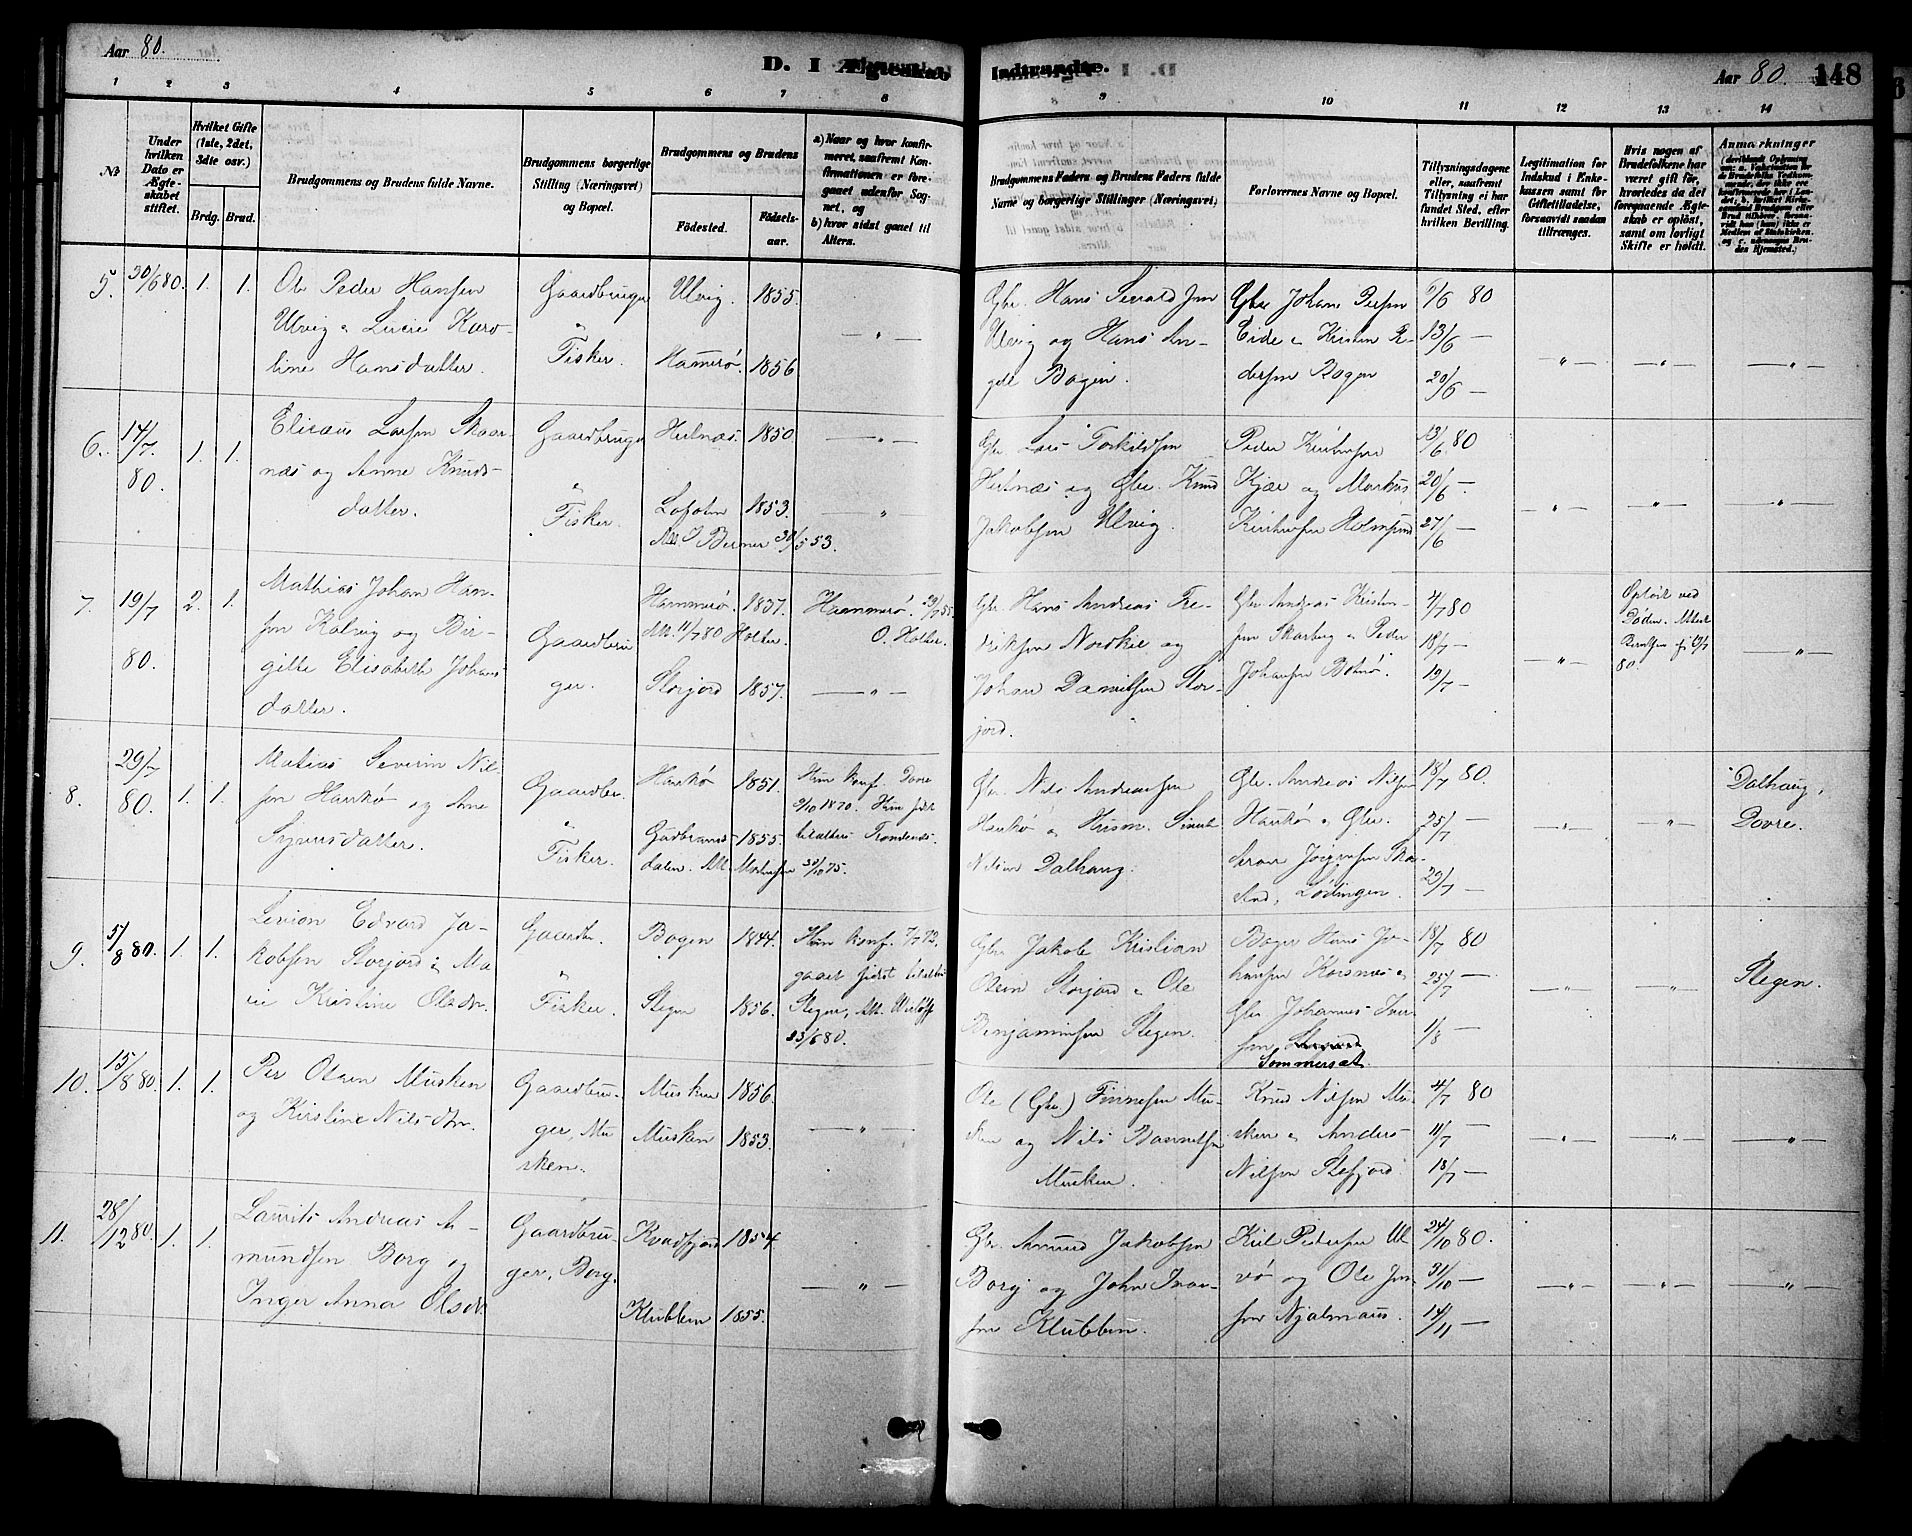 Aar 80.
D. I Ægteskab Indtraadte.
Aar 80. 148
1 2 3 4 5 6 7 8 9 10 11 12 13 14
№
Under hvilken Dato er Ægteskabet stiftet.
Hvilket Gifte (1ste, 2det, 3die osv.)
Brdg. Brud.
Brudgommens og Brudens fulde Navne.
Brudgommens borgerlige Stilling (Næringsvei) og Bopæl.
Brudgommens og Brudens
Födested.
Födselsaar.
a) Naar og hvor konfirmeret, saafremt Konfirmationen er foregaaet udenfor Sognet, og
b) hvor sidst gaaet til Alters.
Brudgommens Faders og Brudens Faders fulde Navne og borgerlige Stillinger (Næringsvei)
Forlovernes Navne og Bopæl.
Tillysningsdagene eller, saafremt Tillysning ei har fundet Sted, efter hvilken Bevilling.
Legitimation for Indskud i Enkekassen samt for Giftetilladelse, forsaavidt saadan tiltrænges.
Hvis nogen af Brudefolkene har været gift för, hvorledes da det foregaaende Ægteskab er oplöst, samt om lovligt Skifte er holdt.
Anmærkninger
5. 30/6 80. 1. 1.
Ole Peder Hansen
Ulvig & Lucie Karo-
line Hansdatter.
Gaardbruger
"
Fisker.
Ulvig. 1855.
Hamerö. 1856
— " —
Gbr. Hans Jon
Ulvig og Hans An-
Bogen.
Gbr Johan Persen
Eide & Kristen
dersen Bogen
6/6 80
13/6 —
20/6 —
— " — — " — — " —
6. 14/7. 80. 1. 1.
Elisæus Larsen Skaar-
næs og Anne Knuds-
datter.
Gaardbruger
"
Fisker.
Helnæs. 1850.
Lofoten 1853.
Berner 30/5 53.
— " —
— " —
Gbr. Lars Torkildsen
Helnæs og Gbr. Knud
Jakobsen Ulvig.
Peder
Kjær og Markus
Holmsund
13/6 80
20/6 —
27/6 —
— " — — " — — " —
7. 19/7 80. 2. 1.
Mathias Johan Han-
sen Kalvig og Bir-
gitte Elisabeth Johans
datter.
Gaardbru
ger.
Hammerö. 1837.
Att. 11/7 80 Holter.
Storjord 1857.
Hammerö. 29/7 55.
O. Holter.
— " —
Gbr. Hans Andreas Fre-
driksen Nordkil og
Johan Danielsen Stor-
jord.
Gbr. Andreas Kristen-
sen Skarberg & Peder
Johansen Botnö.
4/7 80
18/7 —
19/7 —
— " —
Oplöst ved
Döden. Attest
80.
— " —
8. 29/7 80. 1. 1.
Matias Severin Nil-
sen Haukö og Ane
Syversdatter.
Gaardbr.
"
Fisker.
Haukö 1851.
Gudbrands- 1855.
dalen. Att. Mortensen
Hun konf. Dovre
9/10 1870. Hun sidst
til alters
30/10 75.
Gbr. Nils Andreassen
Haukö & Husm. Simen
Nilsen Dalhaug.
Gbr. Andreas Nilsen
Haukö & Gbr.
Jörgensen Ska-
Lödingen.
18/7 80.
25/7 —
29/7 —
— " — — " —
Dalhaug,
Dovre.
9. 5/8 80. 1. 1.
Edvard Ja-
kobsen Storjord & Ma
rie Kristine Olsdtr.
Gaardbr.
"
Fisker.
Bogen 1844.
Stegen 1856.
Hun konf. 7/7 72.
gaaet sidst til alters
Stegen, Att.
23/6 80.
Gbr Jakob Kristian
Olsen Storjord & Ole
Benjaminsen Stegen.
Hans Jo-
hansen Korsnæs &
Gbr Johannes Iver
sen
Sommersæt.
18/7 80
25/7 —
1/8 —
— " — — " —
Stegen.
10. 15/8 80. 1. 1.
Per Olsen Musken
og Kirstine Nilsdtr.
Gaardbru-
ger, Mu
sken.
Musken 1856.
Musken 1853.
— " —
Ole (Gbr.) Finnesen Mu-
sken og Nils
Musken.
Knud Nilsen Mu-
sken & Anders
Nilsen Stefjord.
4/7 80
11/7 —
18/7 —
— " — — " — — " —
11. 28/12 80. 1. 1.
Laurits Andreas A-
mundsen Borg og
Inger Anna Olsdtr.
Gaardbru-
ger, Borg.
Kvadfjord 1854.
Klubben 1855.
— " —
Gbr. Amund Jakobsen
Borg og John Ivar-
sen Klubben.
Kiel Pedersen Ul
vö og Ole Jen-
sen Njalmaas.
24/10 80.
31/10 —
14/11 —
— " — — " — — " —